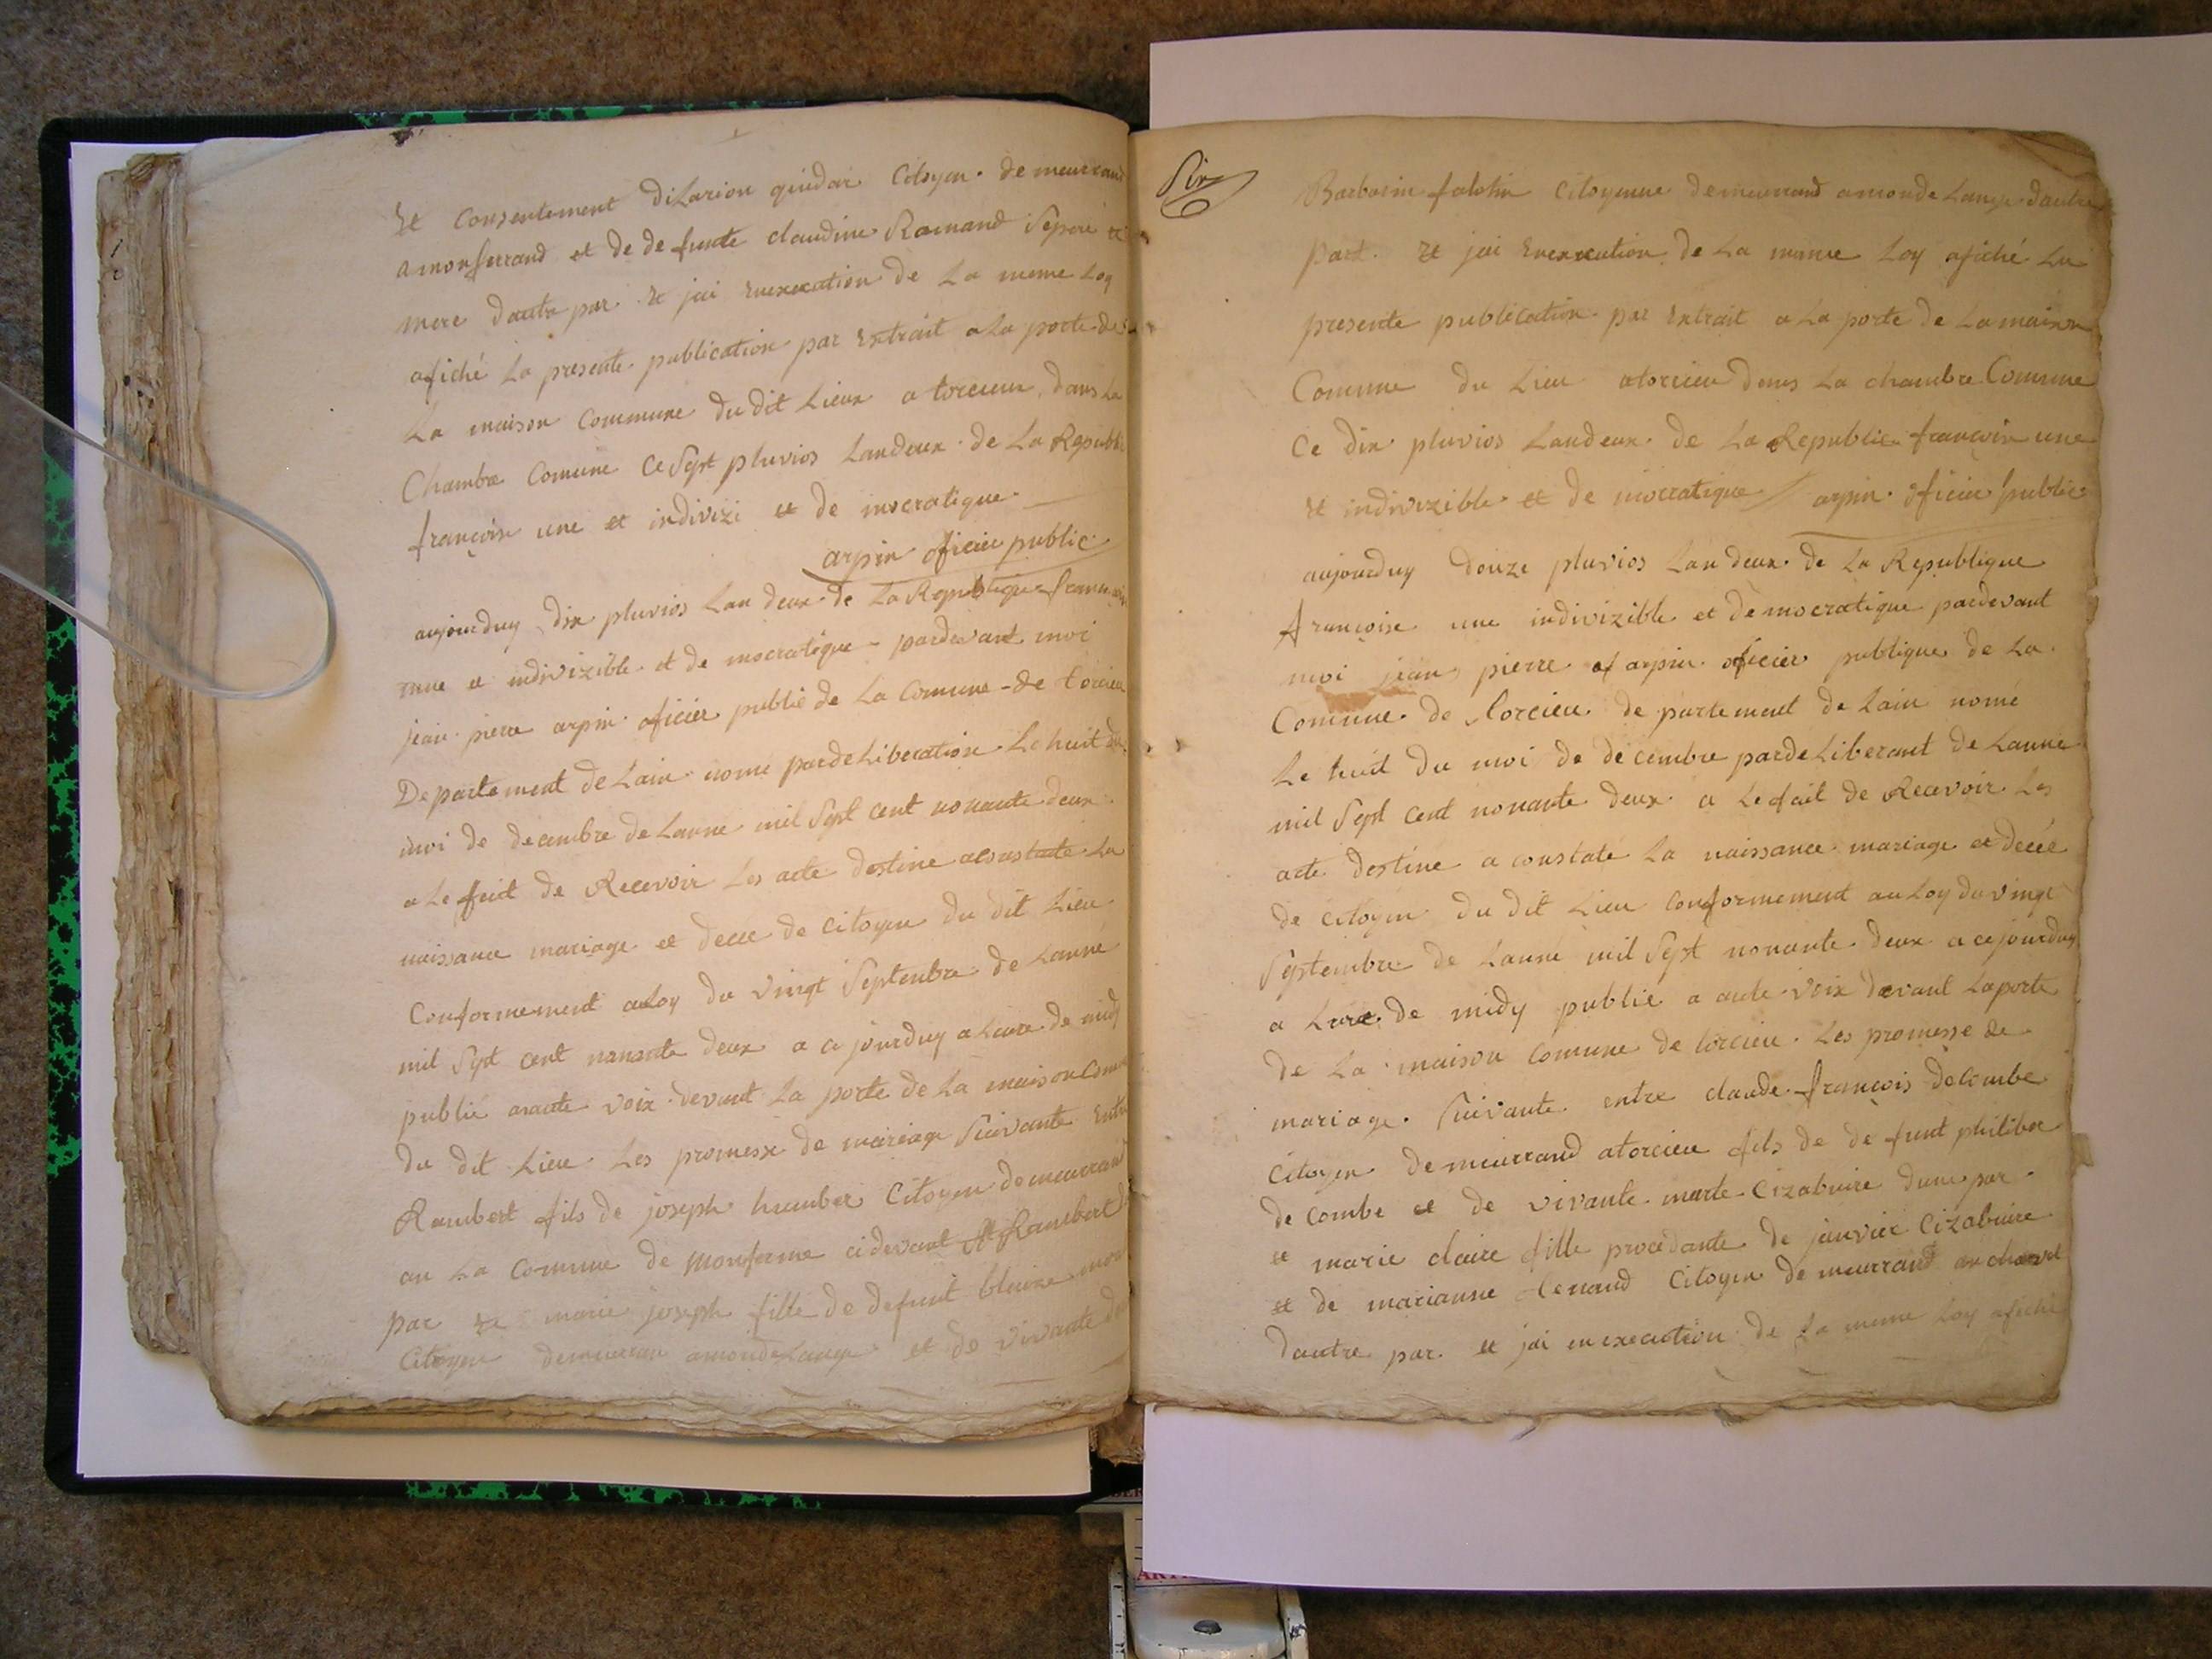 Et Consentement dilarion guidar Citoyen demeurand
a monferrand et de de funte claudine Ramand Sepere et
mere dautre par Et jai Enexecation de La meme Loy
afiché La presente publication par Extrait a La porte de
La maison Commune du dit Lieux a torcieu dans La
Chambre Comune Ce Sept pluvios Landeux de La Republi
françoise une et indivizi et de mocratique
arpin oficier public
aujourduy dix pluvios Lan deux de La Republique francoise
une et indivizible et de mocratique pardevant moi
jean pierre arpin oficier public de La Comune de torcieu
Departement de Lain nome pardeliberation Le huit du
moi de decembre de Lanne mil Sept cent nonante deux
a Le feit de Recevoir Les acte destine aconstate La
naissance mariage et decee de Citoyen du dit Lieu
Conformement a Loy du vingt Septembre de Lanné
mil Sept cent nonante deux a ce jourduy a Leure de midy
publié a aute voix devant La porte de La maison Comune
du dit Lieu Les promesse de mariage Suivante Entre
Rambert fils de joseph humber Citoyen demeurrand
an La Comune de Monferme cidevant St Rambert
par Et marie joseph fille de defunt blaise
Citoyen demeuran amondelange et de vivante
Six
Barbarin falotin Citoyenne demeurrand amonde Lange dautre
part Et jai Enexecution de La meme Loy afiché La
presente publication par Extrait a La porte de La maison
Comune du Lieu atorcieu dans La chambre Comune
Ce dix pluvios Landeux de La Republicu francoise une
et indivizible et de mocratique arpin oficier public
aujourduy douze pluvios Lan deux de La Republique
françoise une indivizible et démocratique pardevant
moi jean pierre arpin oficier publique de La
Comune de Torcieu departement de Lain nome
Le huit du moi de decembre pardeliberant de Lanne
mil Sept cent nonante deux a Le fait de Recevoir Les
acte destine a constaté La naissance mariage et decée
de Citoyen du dit Lieu Conformement au Loy du vingt
Septembre de Lanné mil Sept nonante deux a ce jourduy
a Lure de midy publié a aute voix devant Laporte
de La maison Comune de torcieu Les promesse de
mariage Suivante entre claude françois decombe
Citoyen demeurrand atorcieu fils de de funt philiber
de combe et de vivante marte Cizabuire dune par
et marie claire fille procedante de janvier Cizabuire
et de marianne Tenand Citoyen demeurrand an
dautre par et jai en execution de La meme Loy afiché